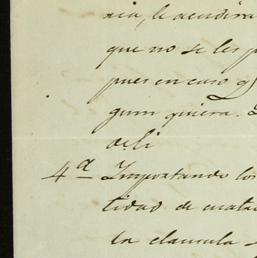 nia, le acudira
que no se les p
pues en caso q
gun quiera.
de li
4ª Importando los
tidad de cuatro
la clausula